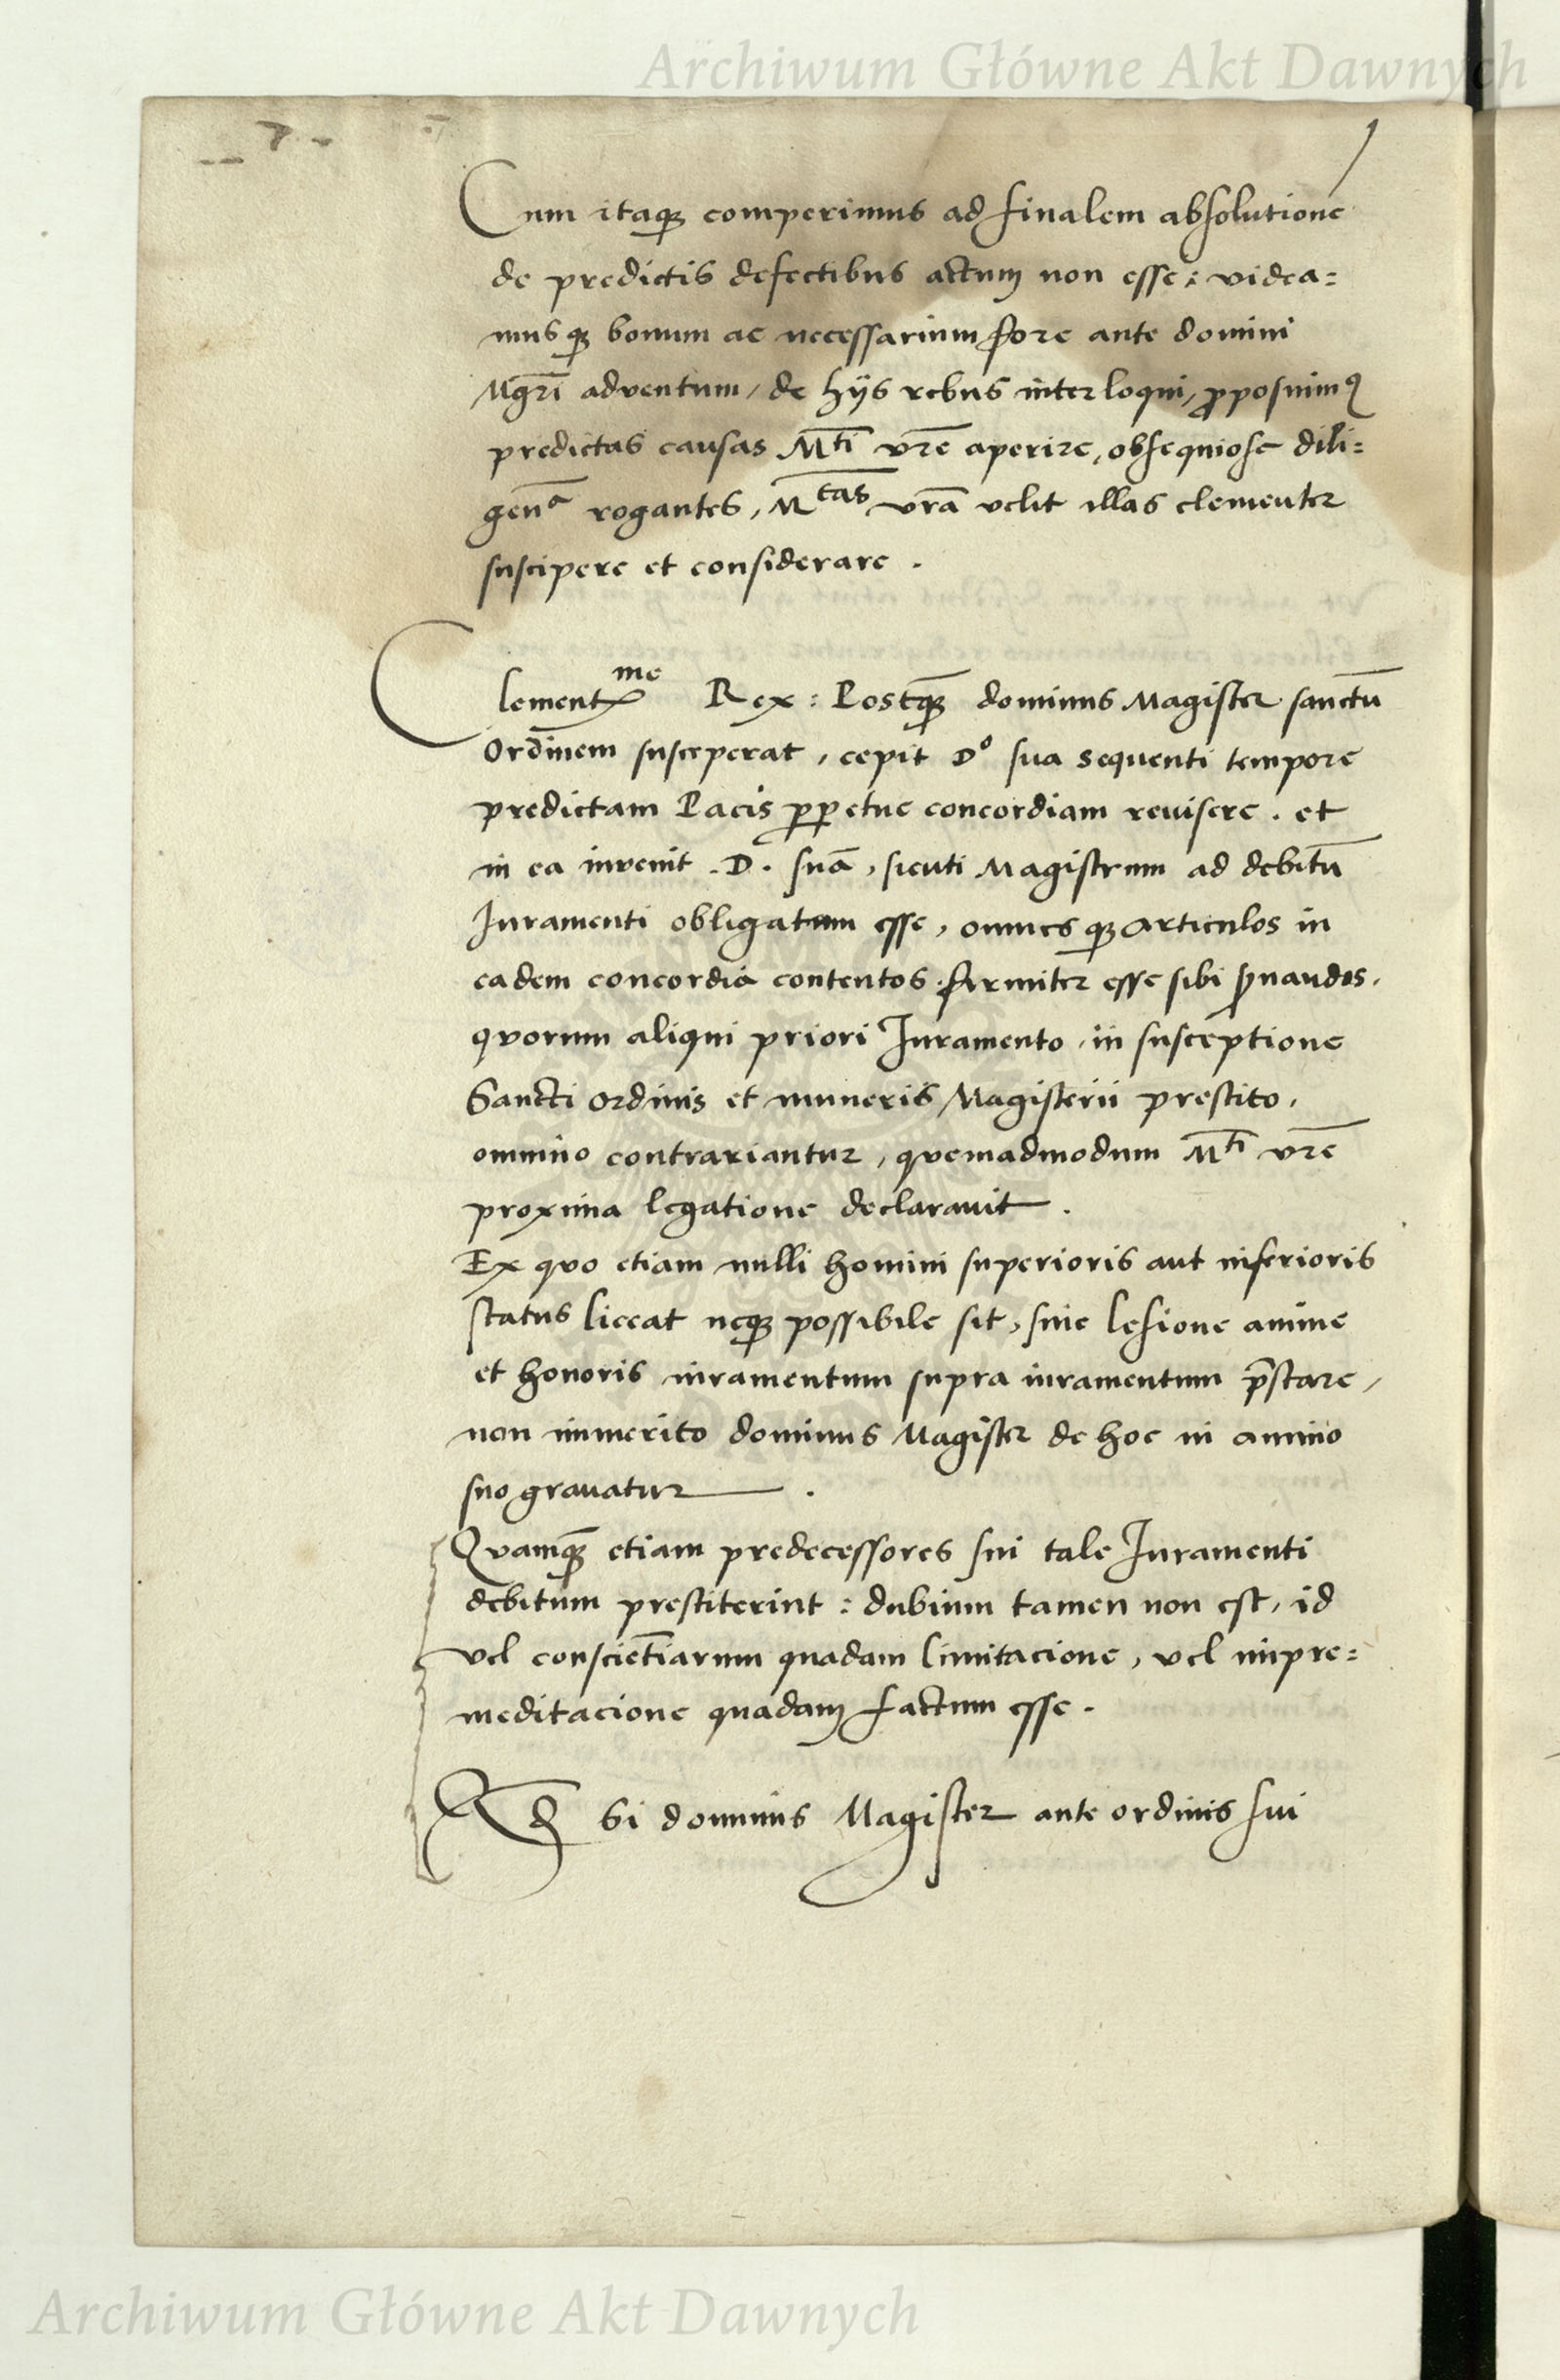 Archiwum Główne Akt Dawnych
Cum itaqꝫ comperimus ad finalem absolutione
de predictis defectibus actum non esse: videa=
musqꝫ bonum ac necessarium fore ante domini
Mgr̄i adventum, de hijs rebus interloqui, ꝓposuimꝰ
predictas causas M^ti vr̄e aperire, obsequiose dili=
gen^a rogantes, M^tas vr̄a velit illas clementer
suscipere et considerare.
Clement^me Rex: Postqꝫ dominus Magister sanctū
Ordinem susceperat, cepit D^o sua sequenti tempore
predictam Pacis ꝑpetue concordiam revisere. et
in ea invenit .D. suā, sicuti Magistrum ad debitū
Juramenti obligatum esse, omnesqꝫ articulos in
eadem concordia contentos firmiter esse sibi ẜuandos.
quorum aliqui priori Juramento in susceptione
Sancti Ordinis et muneris Magisterii prestito,
omnino contrariantur, quemadmodum M^ti vr̄e
proxima legatione declarauit.
Ex quo etiam nulli homini superioris aut inferioris
status liceat neqꝫ possibile sit, sine lesione anime
et honoris iuramentum supra iuramentum p̄stare,
non immerito dominus Magister de hoc in animo
suo grauatur.
Quamqꝫ etiam predecessores sui tale Juramenti
debitum prestiterint: dubium tamen non est, id
vel conscien̄tiarum quadam limitacione, vel impre=
meditacione quadam factum esse.
Qd Si dominus Magister ante ordinis sui
Archiwum Główne Akt Dawnych